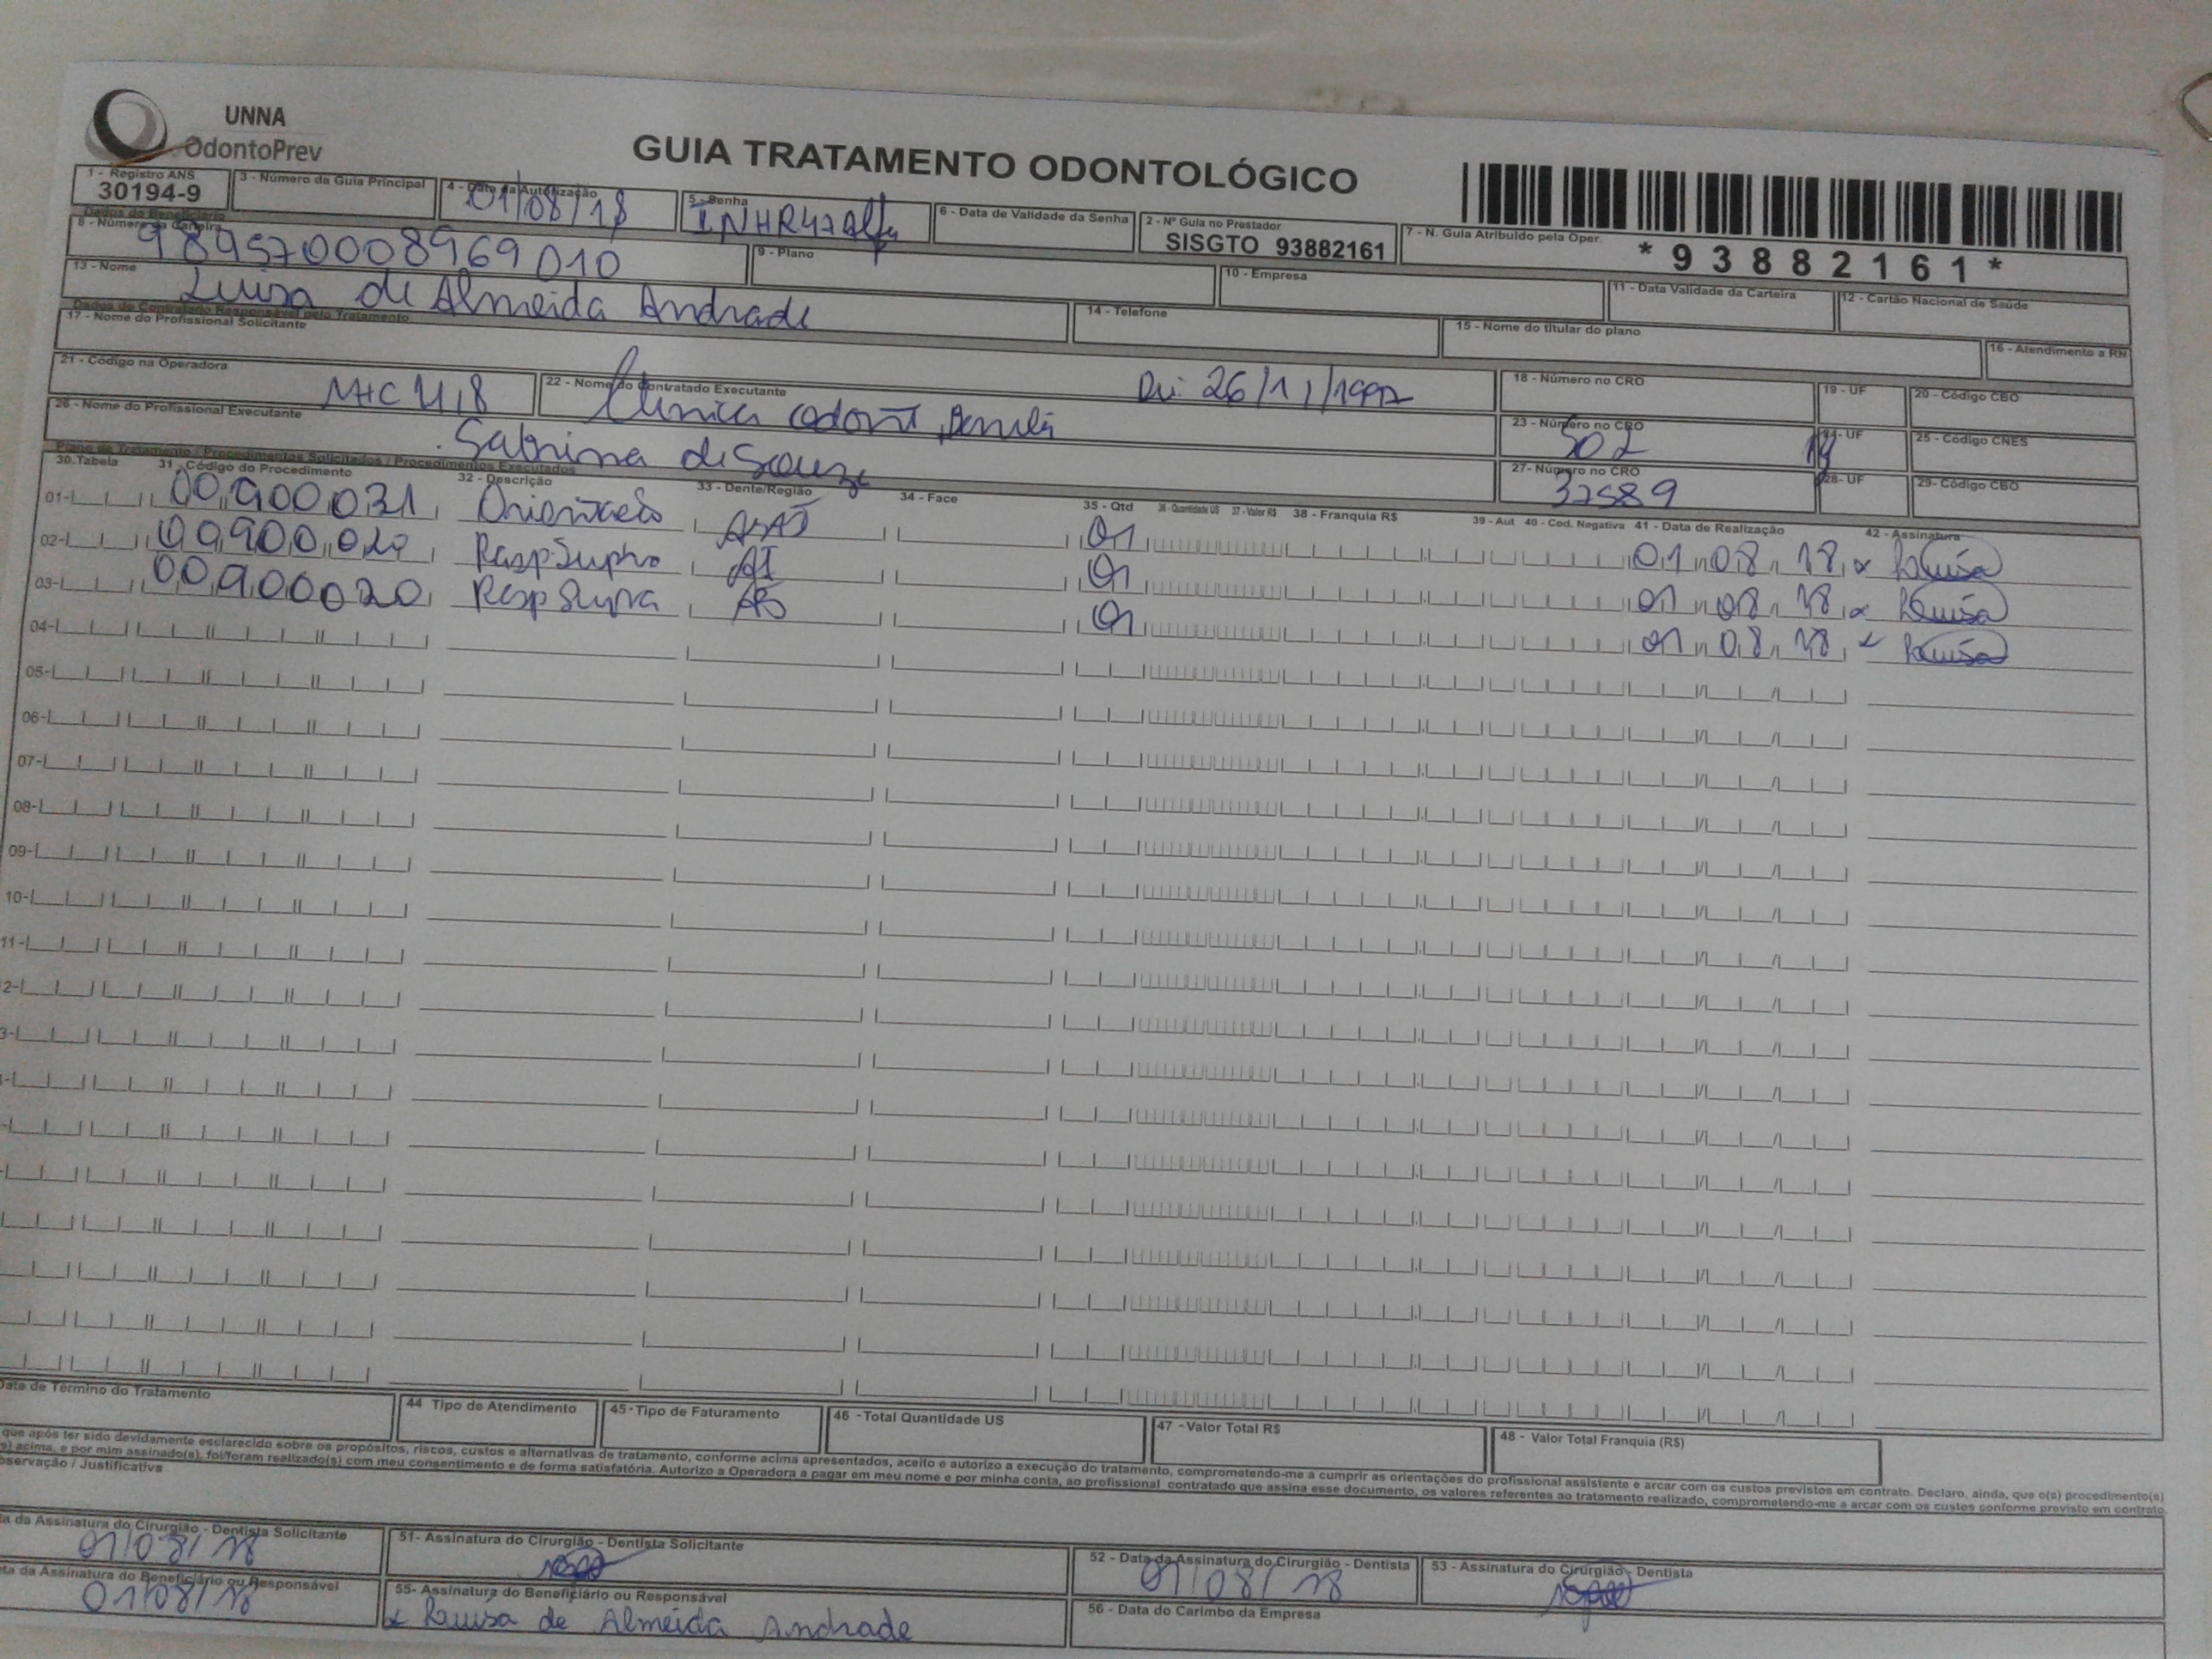 UNNA
OdontoPrev
GUIA TRATAMENTO ODONTOLÓGICO
1 - Registro ANS
30194-9
3 - Número da Guia Principal
4 - Data da Autorização
01/08/18
5 - Senha
6 - Data de Validade da Senha
2 - Nº Guia no Prestador
SISGTO 93882161
7 - N. Guia Atribuído pela Oper.
*93882161*
Dados do Beneficiário
8 - Número da Carteira
989570008969010
9 - Plano
10 - Empresa
11 - Data Validade da Carteira
12 - Cartão Nacional de Saúde
13 - Nome
Luisa de Almeida Andrade
14 - Telefone
15 - Nome do titular do plano
16 - Atendimento a RN
Dados do Contratado Responsável pelo Tratamento
17 - Nome do Profissional Solicitante
18 - Número no CRO
19 - UF
20 - Código CBO
21 - Código na Operadora
22 - Nome do Contratado Executante
Clinica odont
26/11/1992
23 - Número no CRO
502
24 - UF
25 - Código CNES
26 - Nome do Profissional Executante
Sabrina de Souza
27 - Número no CRO
37589
28 - UF
29 - Código CBO
Plano de Tratamento / Procedimentos Solicitados / Procedimentos Executados
30. Tabela 31 - Código do Procedimento 32 - Descrição 33 - Dente/Região 34 - Face 35 - Qtd 36 - Quantidade US 37 - Valor R$ 38 - Franquia R$ 39 - Aut 40 - Cod. Negativa 41 - Data de Realização 42 - Assinatura
01- 00900031 Orientação 01 01 08 18 x Luisa
02- 00900020 RaspSupra AI 01 01 08 18 x Luisa
03- 00900020 Rasp Supra AS 01 01 08 18 x Luisa
04-
05-
06-
07-
08-
09-
10-
11-
2-
3-
Data de Término do Tratamento
44 Tipo de Atendimento
45 - Tipo de Faturamento
46 - Total Quantidade US
47 - Valor Total R$
48 - Valor Total Franquia (R$)
que após ter sido devidamente esclarecido sobre os propósitos, riscos, custos e alternativas de tratamento, conforme acima apresentados, aceito e autorizo a execução do tratamento, comprometendo-me a cumprir as orientações do profissional assistente e arcar com os custos previstos em contrato. Declaro, ainda, que o(s) procedimento(s)
s) acima, e por mim assinado(s), foi/foram realizado(s) com meu consentimento e de forma satisfatória. Autorizo a Operadora a pagar em meu nome e por minha conta, ao profissional contratado que assina esse documento, os valores referentes ao tratamento realizado, comprometendo-me a arcar com os custos conforme previsto em contrato.
bservação / Justificativa
ta da Assinatura do Cirurgião - Dentista Solicitante
01/08/18
51- Assinatura do Cirurgião - Dentista Solicitante
52 - Data da Assinatura do Cirurgião - Dentista
01/08/18
53 - Assinatura do Cirurgião - Dentista
ta da Assinatura do Beneficiário ou Responsável
01/08/18
55- Assinatura do Beneficiário ou Responsável
x Luisa de Almeida Andrade
56 - Data do Carimbo da Empresa